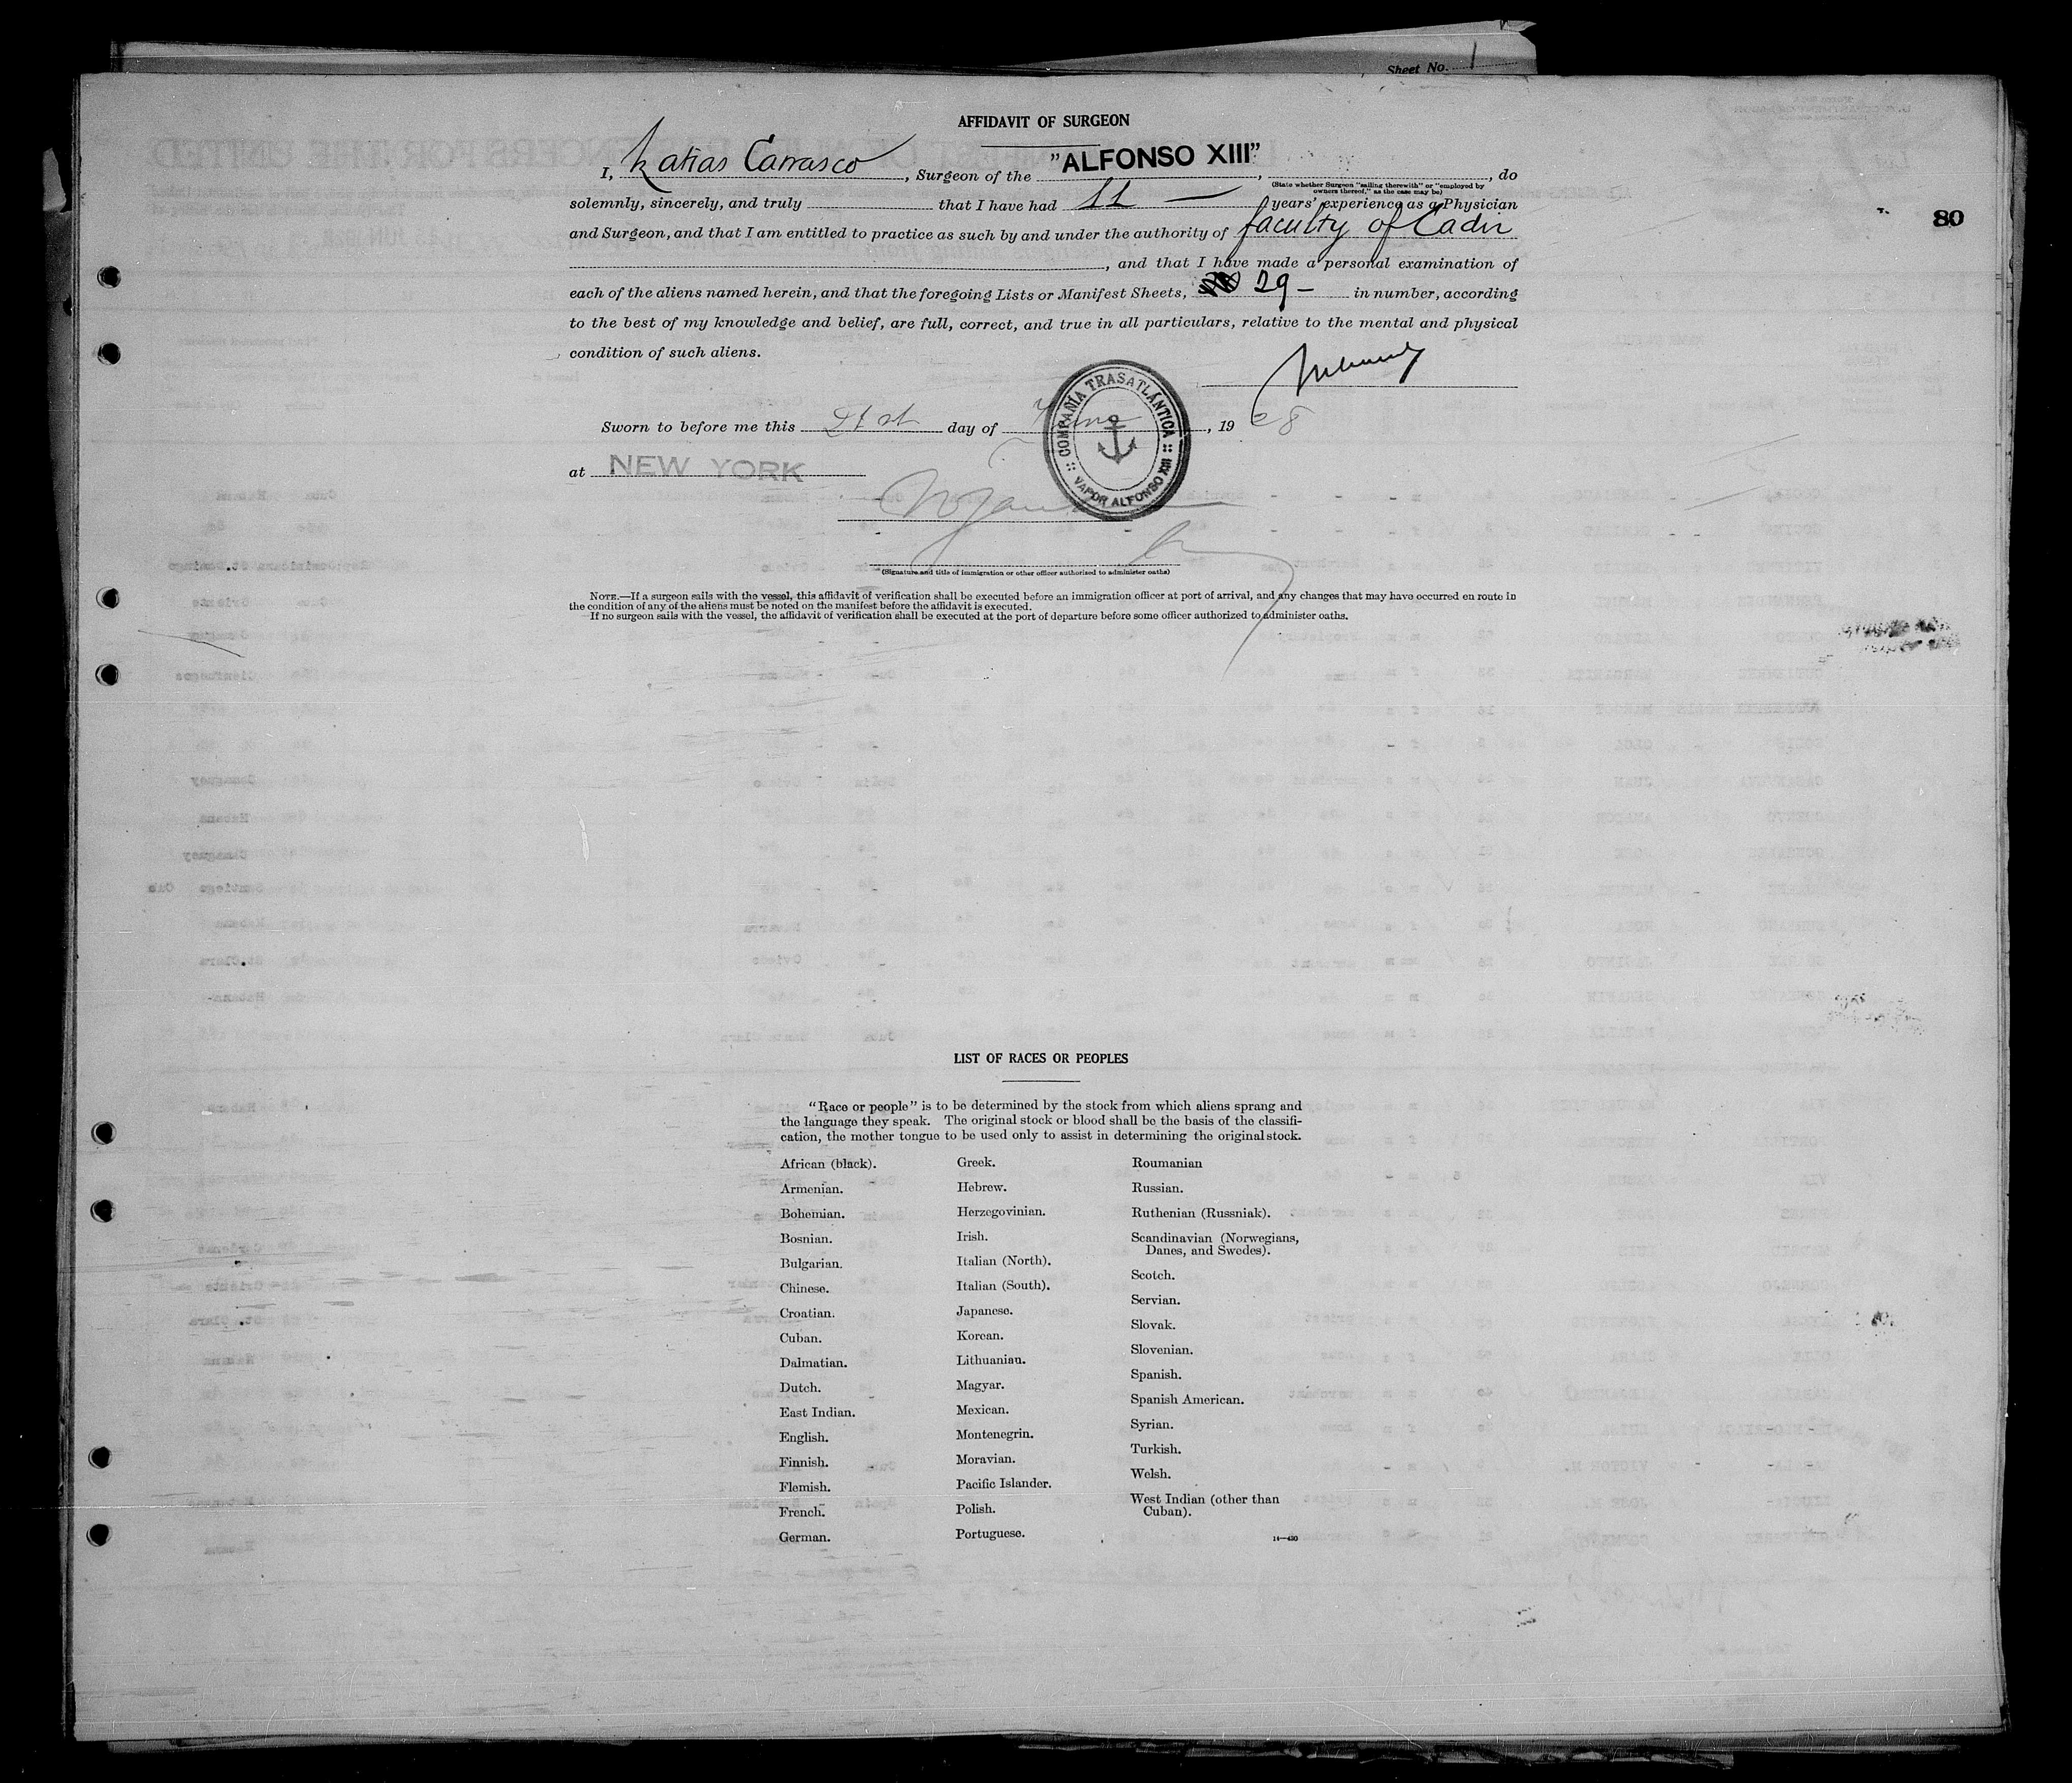 Sheet No. 1
AFFIDAVIT OF SURGEON
I, Matias Carrasco, Surgeon of the "ALFONSO XIII", , do
(State whether Surgeon "sailing therewith" or "employed by
owners thereof," as the case may be)
solemnly, sincerely, and truly that I have had 11 — years' experience as a Physician
80
and Surgeon, and that I am entitled to practice as such by and under the authority of faculty of Cadiz
, and that I have made a personal examination of
each of the aliens named herein, and that the foregoing Lists or Manifest Sheets, 29 — in number, according
to the best of my knowledge and belief, are full, correct, and true in all particulars, relative to the mental and physical
condition of such aliens.
Sworn to before me this 21st day of June, 1928
at NEW YORK
:: COMPAÑIA TRASATLÁNTICA ::
VAPOR ALFONSO XIII
(Signature and title of immigration or other officer authorized to administer oaths)
NOTE.—If a surgeon sails with the vessel, this affidavit of verification shall be executed before an immigration officer at port of arrival, and any changes that may have occurred en route in
the condition of any of the aliens must be noted on the manifest before the affidavit is executed.
If no surgeon sails with the vessel, the affidavit of verification shall be executed at the port of departure before some officer authorized to administer oaths.
LIST OF RACES OR PEOPLES
"Race or people" is to be determined by the stock from which aliens sprang and
the language they speak. The original stock or blood shall be the basis of the classifi-
cation, the mother tongue to be used only to assist in determining the original stock.
African (black).
Armenian.
Bohemian.
Bosnian.
Bulgarian.
Chinese.
Croatian.
Cuban.
Dalmatian.
Dutch.
East Indian.
English.
Finnish.
Flemish.
French.
German.
Greek.
Hebrew.
Herzegovinian.
Irish.
Italian (North).
Italian (South).
Japanese.
Korean.
Lithuanian.
Magyar.
Mexican.
Montenegrin.
Moravian.
Pacific Islander.
Polish.
Portuguese.
Roumanian
Russian.
Ruthenian (Russniak).
Scandinavian (Norwegians,
Danes, and Swedes).
Scotch.
Servian.
Slovak.
Slovenian.
Spanish.
Spanish American.
Syrian.
Turkish.
Welsh.
West Indian (other than
Cuban).
14—430